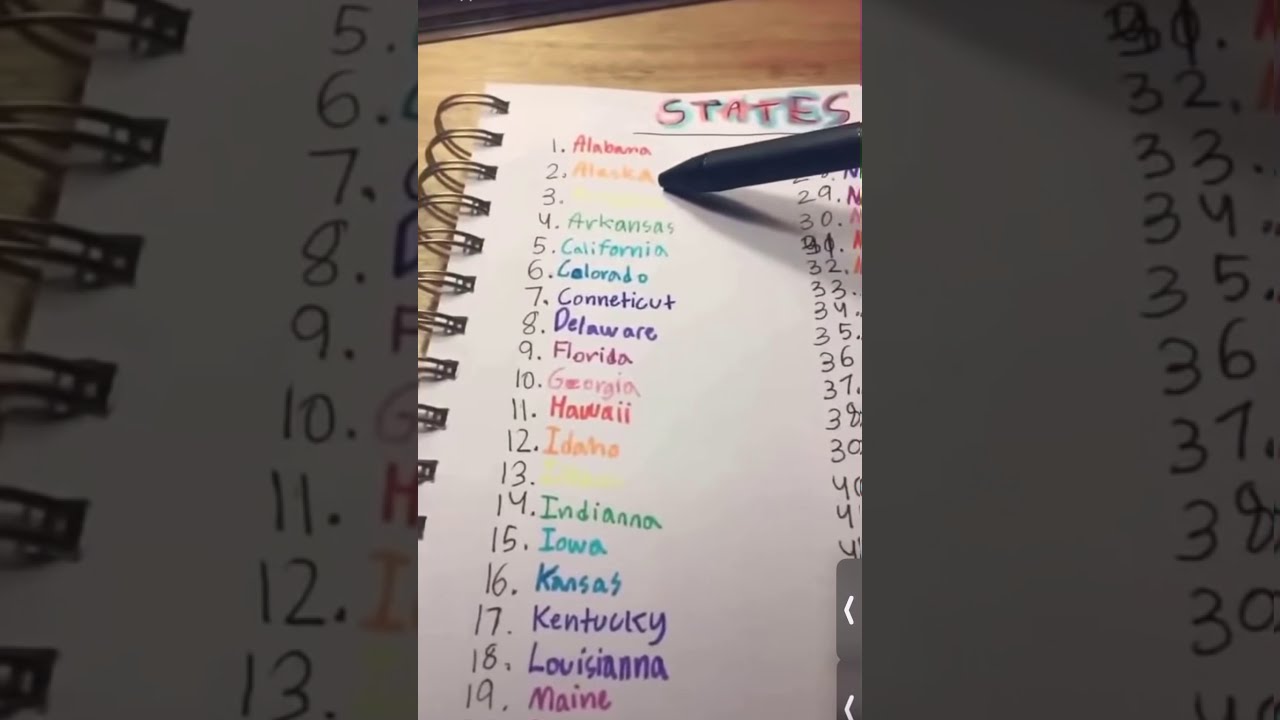 STATES
1. Alabama
2. Alaska
3.
4. Arkansas
5. California
6. Colorado
7. Conneticut
8. Delaware
9. Florida
10. Georgia
11. Hawaii
12. Idaho
13.
14. Indianna
15. Iowa
16. Kansas
17. Kentucky
18. Louisianna
19. Maine
29. N
30.
31.
32.
33.
34.
35.
36
37.
38
30
40
4
4